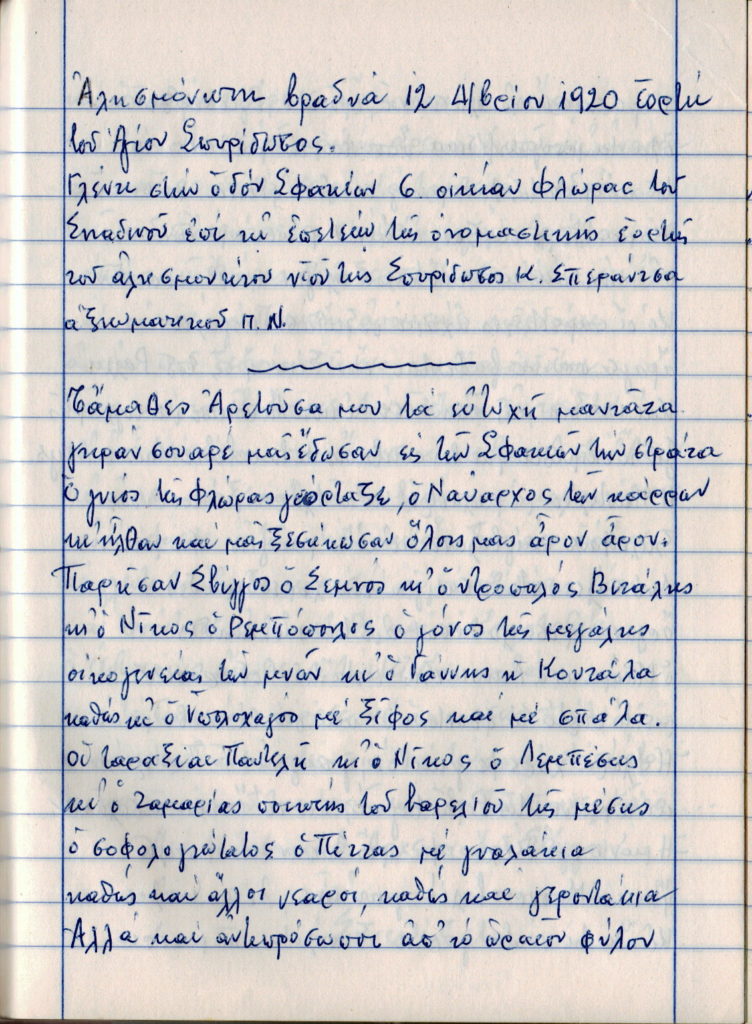 Ἀλησμόνητη βραδυά 12 Δ/βρίου 1920 ἑορτή
τοῦ Ἁγίου Σπυρίδωνος.
Γλέντι στὴν ὁδόν Σφακίων 6. οἰκίαν Φλώρας τοῦ
Σπαδινοῦ ἐπί τῇ ἐπετείῳ τῆς ὀνομαστικῆς ἑορτῆς
τοῦ ἀλησμονήτου υἱοῦ της Σπυρίδωνος Κ. Σπεράντσα
ἀξιωματικοῦ Π.Ν.
Τἄμαθες Ἀρετοῦσα μου τά εὐτυχῆ μαντάτα
γκράν σουαρέ μᾶς ἔδωσαν εἰς τῶν Σφακίων τὴν στράτα
Ὁ γυιός τῆς Φλώρας γιόρταζε, ὁ Ναύαρχος τῶν κάρρων
κι' ἦλθαν καί μᾶς ξεσήκωσαν ὅλους μας ἆρον ἆρον.
Παρῆσαν Σβίγγος ὁ Σεμνός κι' ὁ ντροπαλός Βιτάλης
κι' ὁ Νῖκος ὁ Ρεμπόπουλος ὁ γόνος τῆς μεγάλης
οἰκογενείας τῶν μνῶν κι' ὁ Γιάννης ἡ Κουτάλα
καθώς κι' ὁ Υπολοχαγός μέ ξῖφος καί μέ σπάλα.
Οὗ ταραξίας Παντελῆ κι' ὁ Νῖκος ὁ Λεμπέσης
κι' ὁ Ζαμαρίας ποιητής τοῦ βαρελιοῦ τῆς μέσης
ὁ σοφολογιώτατος ὁ Πέτρας μέ γυαλάκια
καθώς καί ἄλλοι νεαροί, καθώς καί γεροντάκια
Ἀλλά καί ἀντιπρόσωποι ἀπ' τό ὡραῖον φύλον